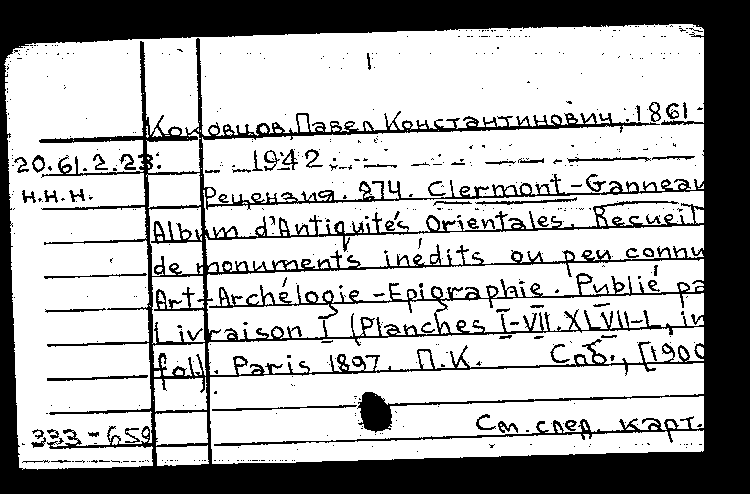 1
Коковцов, Павел Константинович, 1861-
20.61.2.23. 1942.
н.н.н. Рецензия. 274. Clermont-Ganneau
Album d'Antiquités Orientales. Recueil
de monuments inédits ou peu connu
Art-Archélogie-Epigraphie. Publié pa
Livraison I (Planches I-VII.XLVII-L, in
fol). Paris 1897. П.К. Спб., [1900
333-659 См. след. карт.